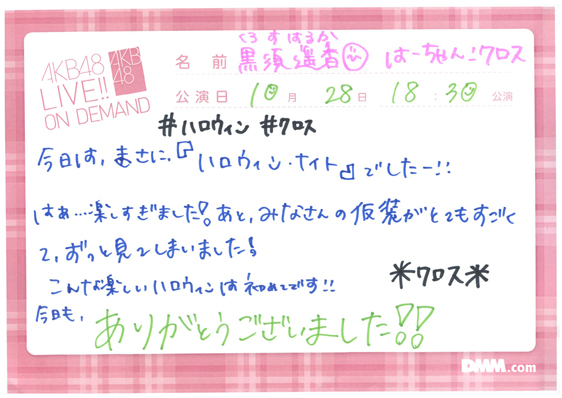 AKB48
LIVE!!
ON DEMAND
AKB
48
くろすはるか
名前 黒須遥香 はーちゃん!クロス
公演日 10月 28日 18:30公演
#ハロウィン #クロス
今日は、まさに、『ハロウィン・ナイト』でしたー!!
はぁ…楽しすぎました!あと、みなさんの仮装がとてもすごく
て、ずっと見てしまいました!
こんな楽しいハロウィンは初めてです!!
*クロス*
今日も、
ありがとうございました!!
DMM.com